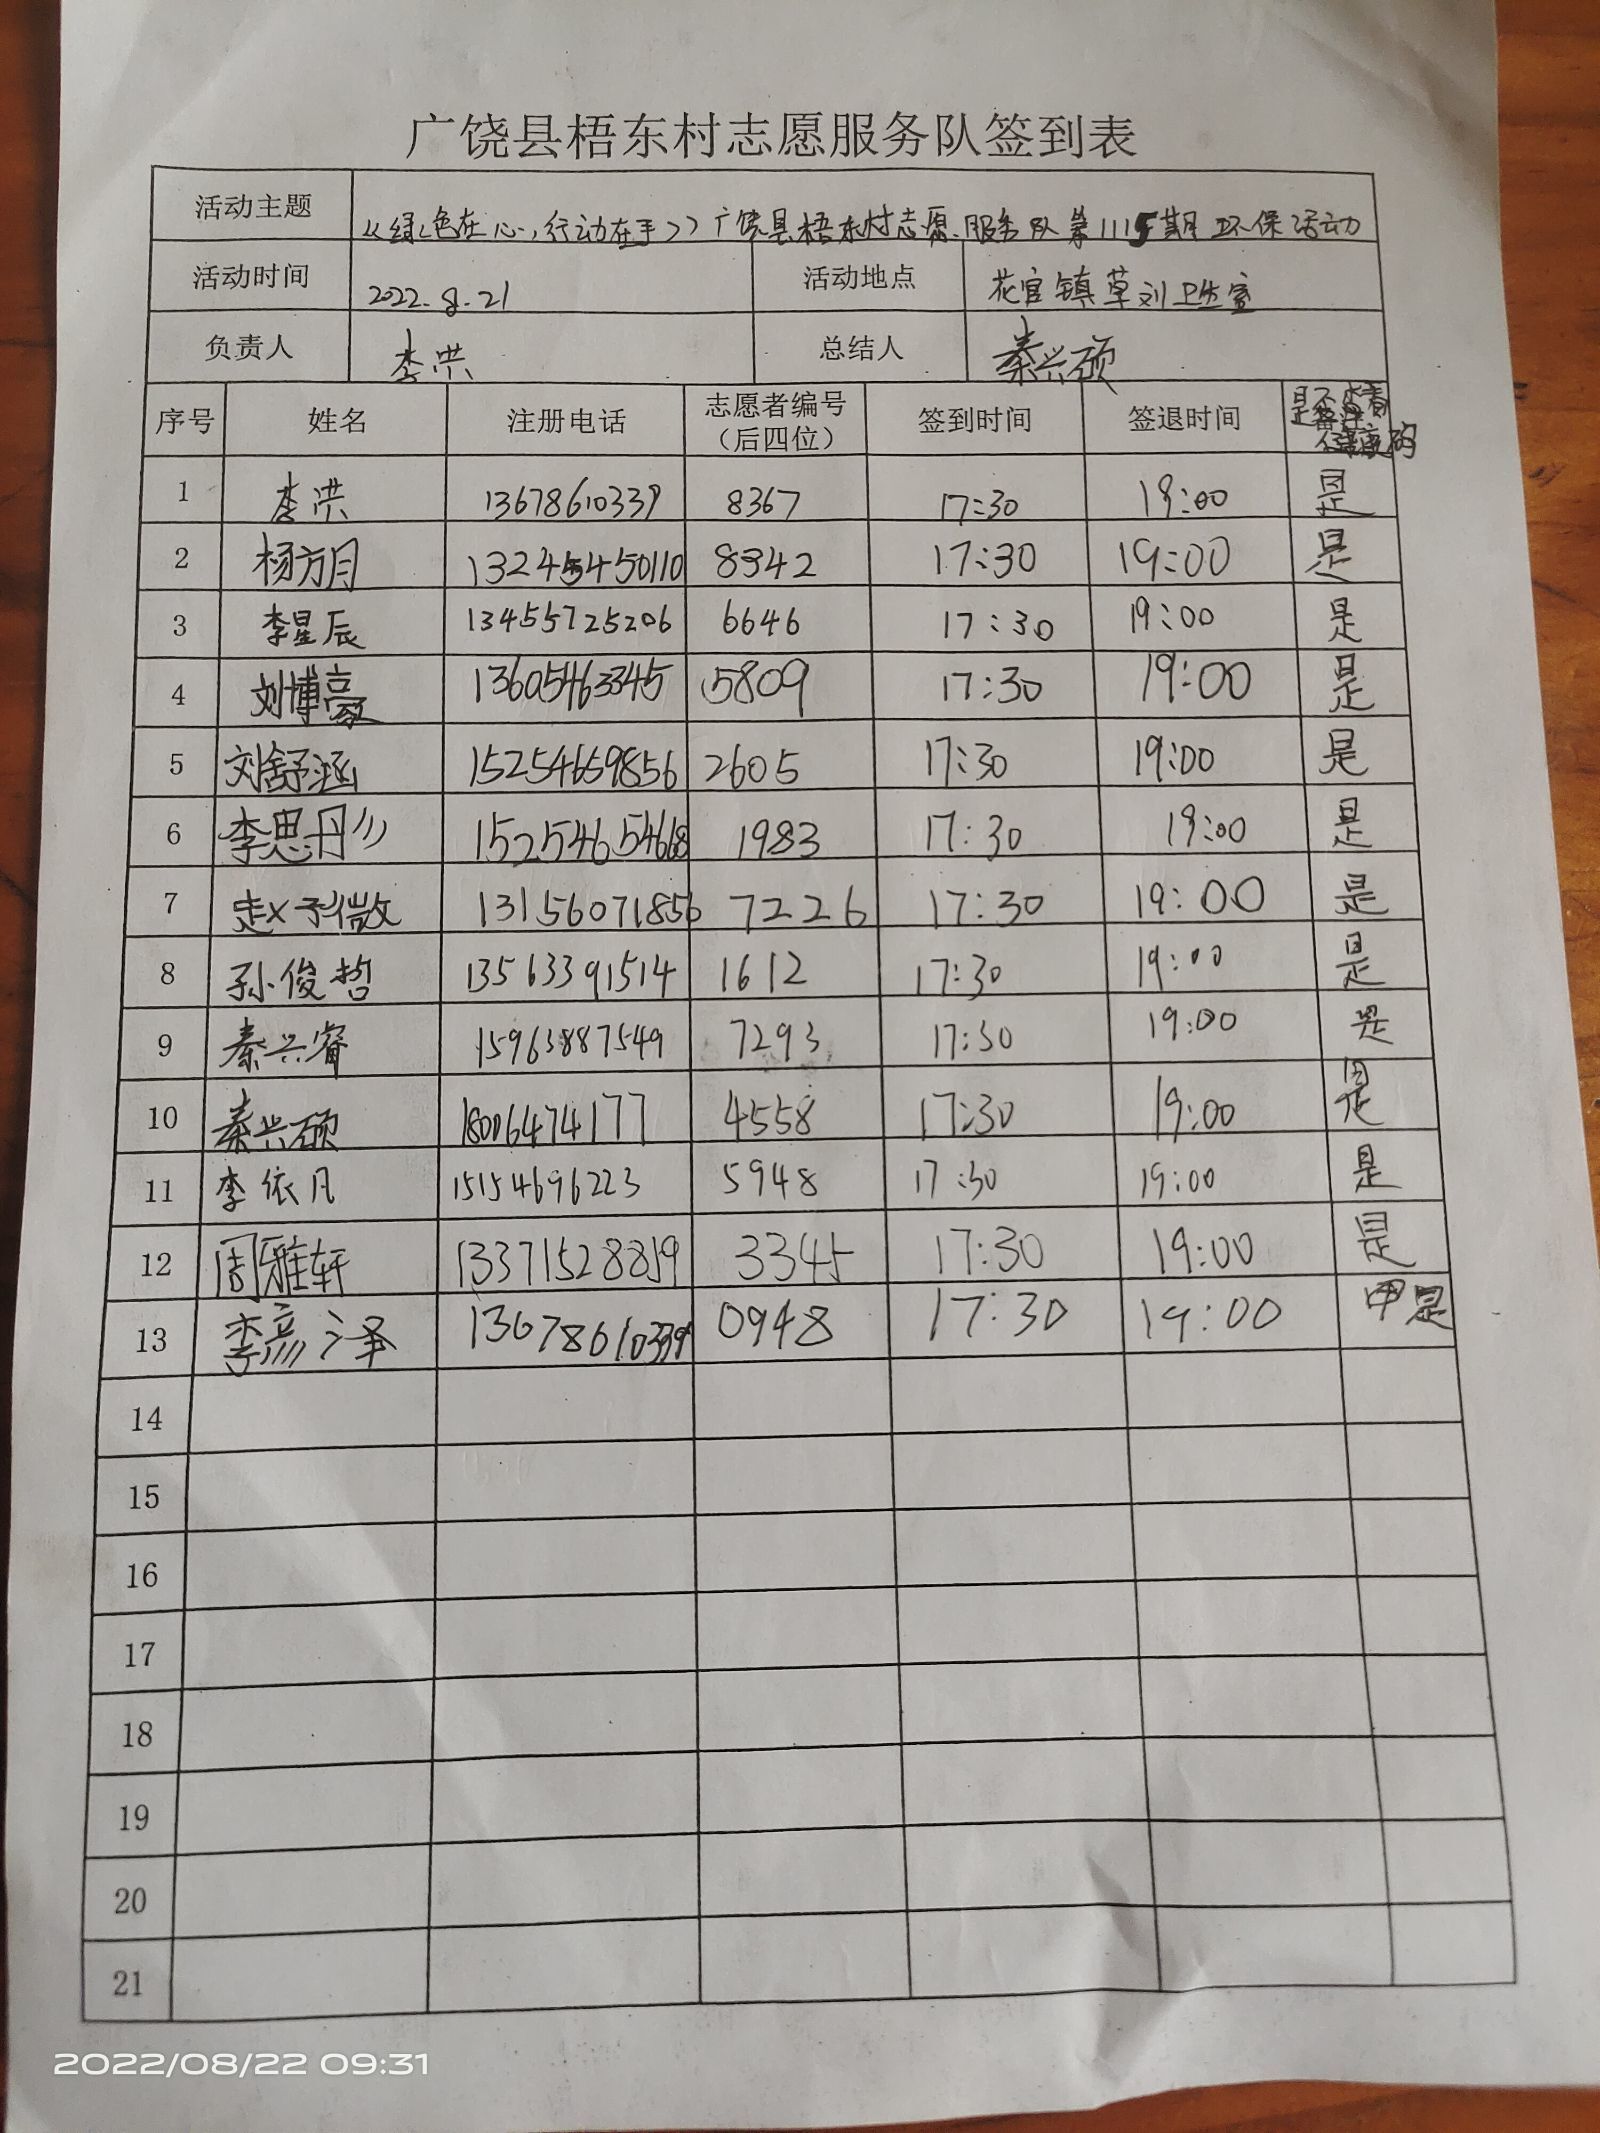 广饶县梧东村志愿服务队签到表
活动主题 《绿色在心,行动在手》广饶县梧东村志愿服务队第1115期环保活动
活动时间 2022.8.21 活动地点 花官镇草刘卫生室
负责人 李洪 总结人 秦兴硕
序号 姓名 注册电话 志愿者编号（后四位） 签到时间 签退时间
1 李洪 13678610339 8367 17:30 19:00 是
2 杨方月 8342 17:30 19:00 是
3 李星辰 13455725206 6646 17:30 19:00 是
4 刘博豪 13605463345 5809 17:30 19:00 是
5 刘舒涵 15254659856 2605 17:30 19:00 是
6 李思彤 15254654668 1983 17:30 19:00 是
7 赵子微 13156071856 7226 17:30 19:00 是
8 孙俊哲 13563391514 1612 17:30 19:00 是
9 秦兴睿 15963887549 7293 17:30 19:00 是
10 秦兴硕 18006474177 4558 17:30 19:00 是
11 李依凡 15154696223 5948 17:30 19:00 是
12 周雅轩 13371528859 3345 17:30 19:00 是
13 李彦泽 13678610339 0948 17:30 19:00 是
14
15
16
17
18
19
20
21
2022/08/22 09:31